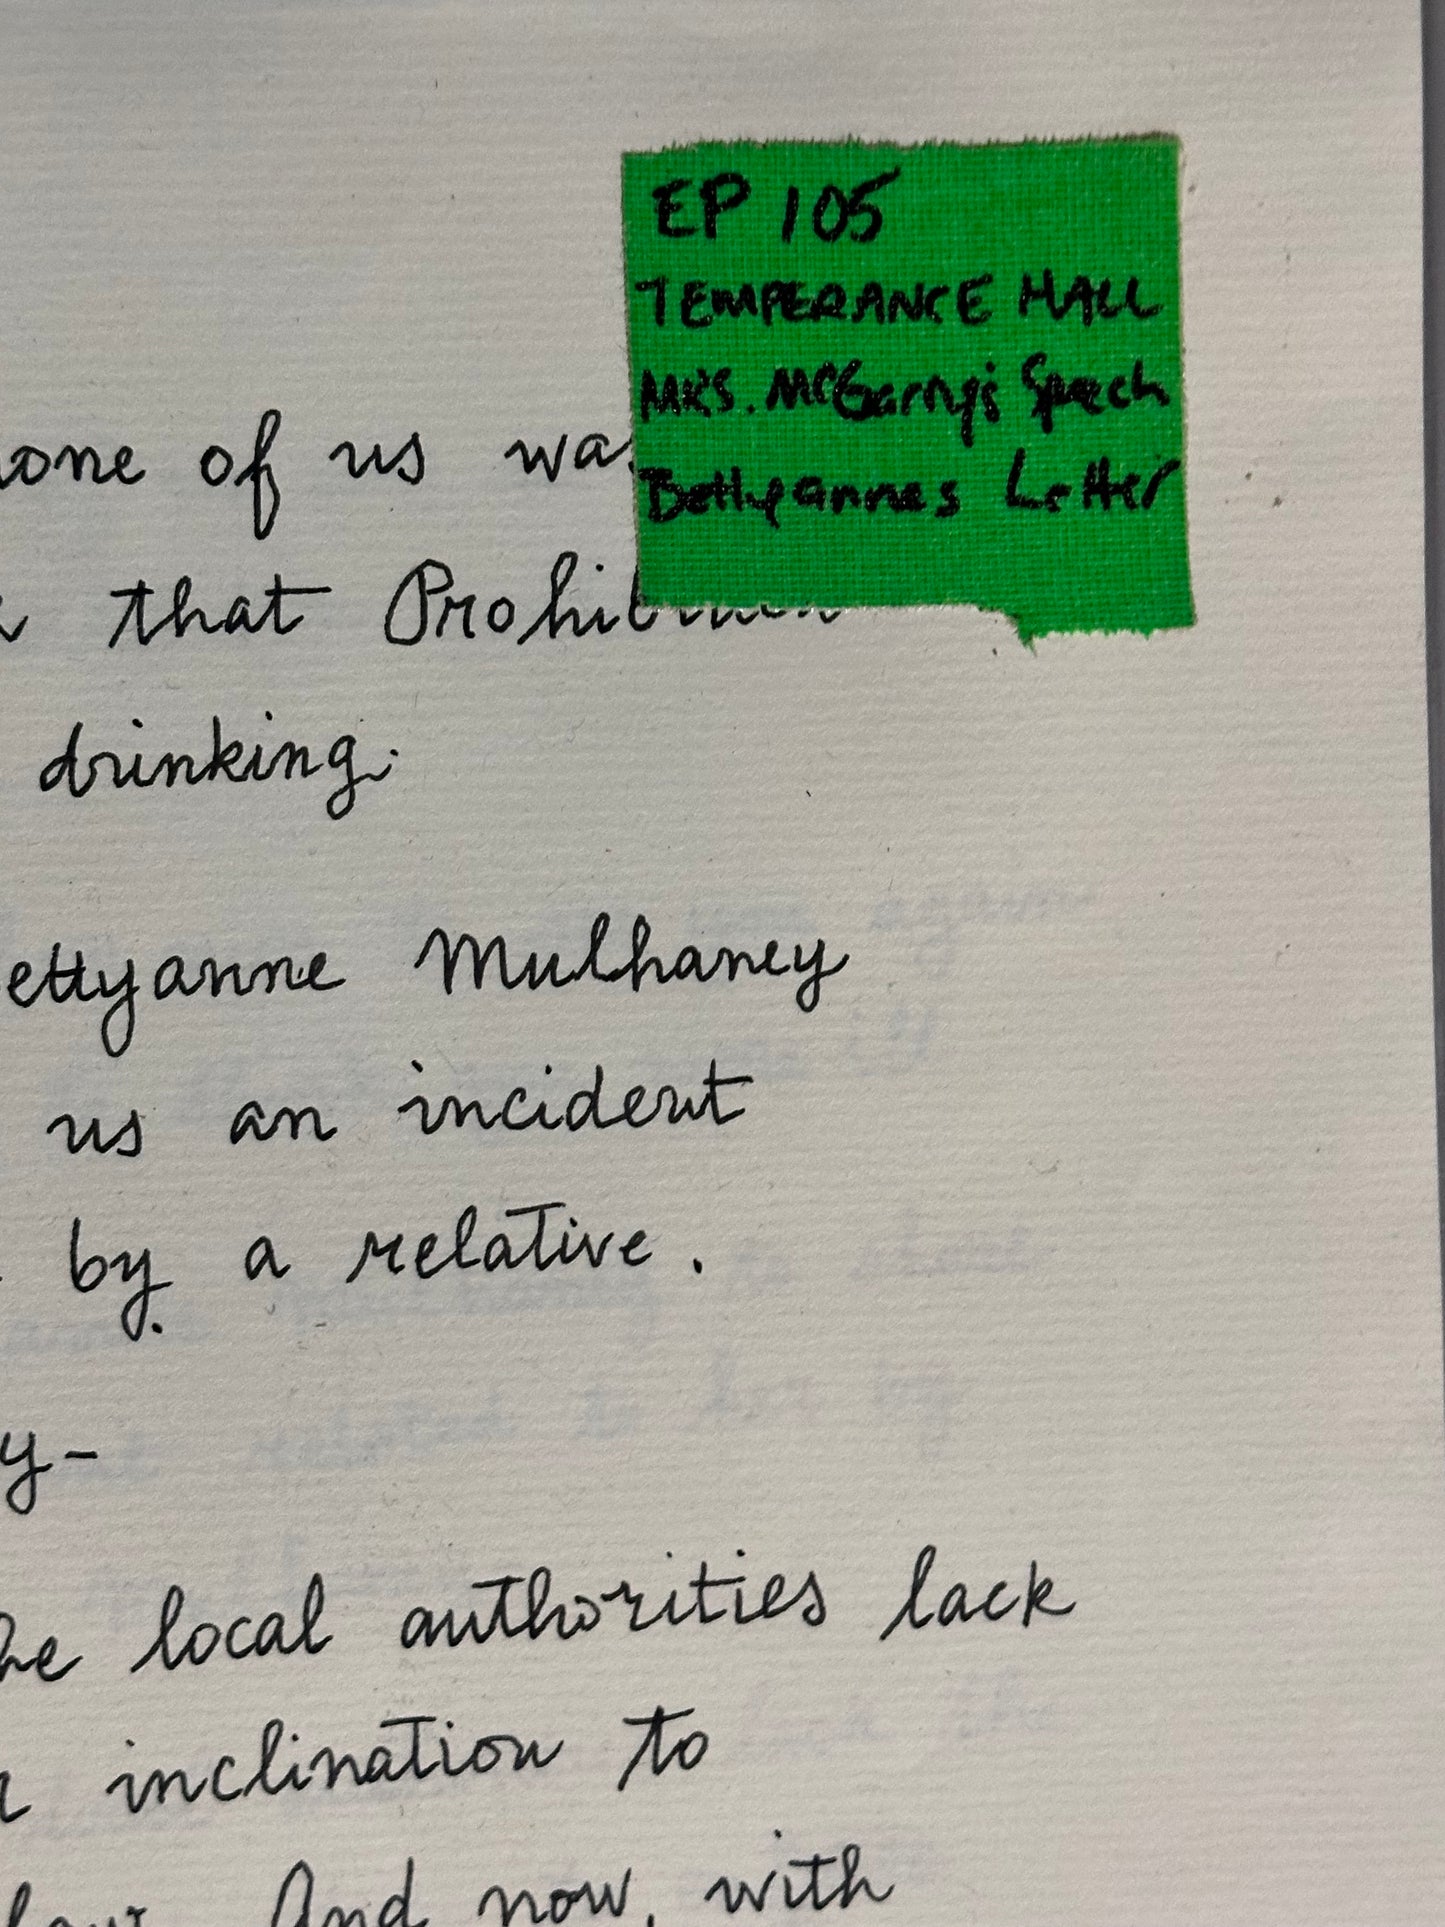 EP 105
TEMPERANCE HALL
MRS. McGarry's Speech
Bettyannes Letter
of us
that
drinking.
Mulhaney
us an incident
by a relative.
local authorities lack
inclination to
And now, with